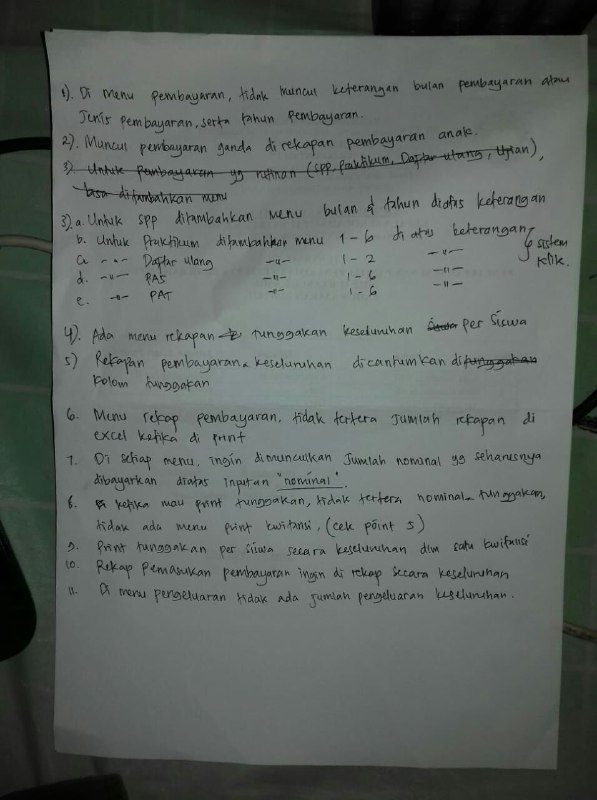 1). Di menu pembayaran, tidak muncul keterangan bulan pembayaran atau
Jenis pembayaran, serta tahun pembayaran.
2). Muncul pembayaran ganda di rekapan pembayaran anak.
3). Untuk Pembayaran yg rutinan (spp, praktikum, Daftar ulang, Ujian),
bisa ditambahkan menu
3). a. Untuk spp ditambahkan menu bulan & tahun diatas keterangan
b. Untuk Praktikum ditambahkan menu 1 - 6 di atas keterangan
c. -"- Daftar ulang -"- 1 - 2 -"-
sistem
klik.
d. -"- PAS -"- 1 - 6 -"-
e. -"- PAT -"- 1 - 6 -"-
4). Ada menu rekapan tunggakan keseluruhan Siswa per Siswa
5) Rekapan pembayaran keseluruhan dicantumkan di tunggakan
kolom tunggakan
6. Menu rekap pembayaran, tidak tertera Jumlah rekapan di
excel ketika di print
7. Di setiap menu, ingin dimunculkan Jumlah nominal yg seharusnya
dibayarkan diatas inputan "nominal".
8. ketika mau print tunggakan, tidak tertera nominal tunggakan,
tidak ada menu print kwitansi, (cek point 5)
9. Print tunggakan per siswa secara keseluruhan dlm satu kwitansi
10. Rekap Pemasukan pembayaran ingin di rekap secara keseluruhan
11. Di menu pengeluaran tidak ada jumlah pengeluaran keseluruhan.